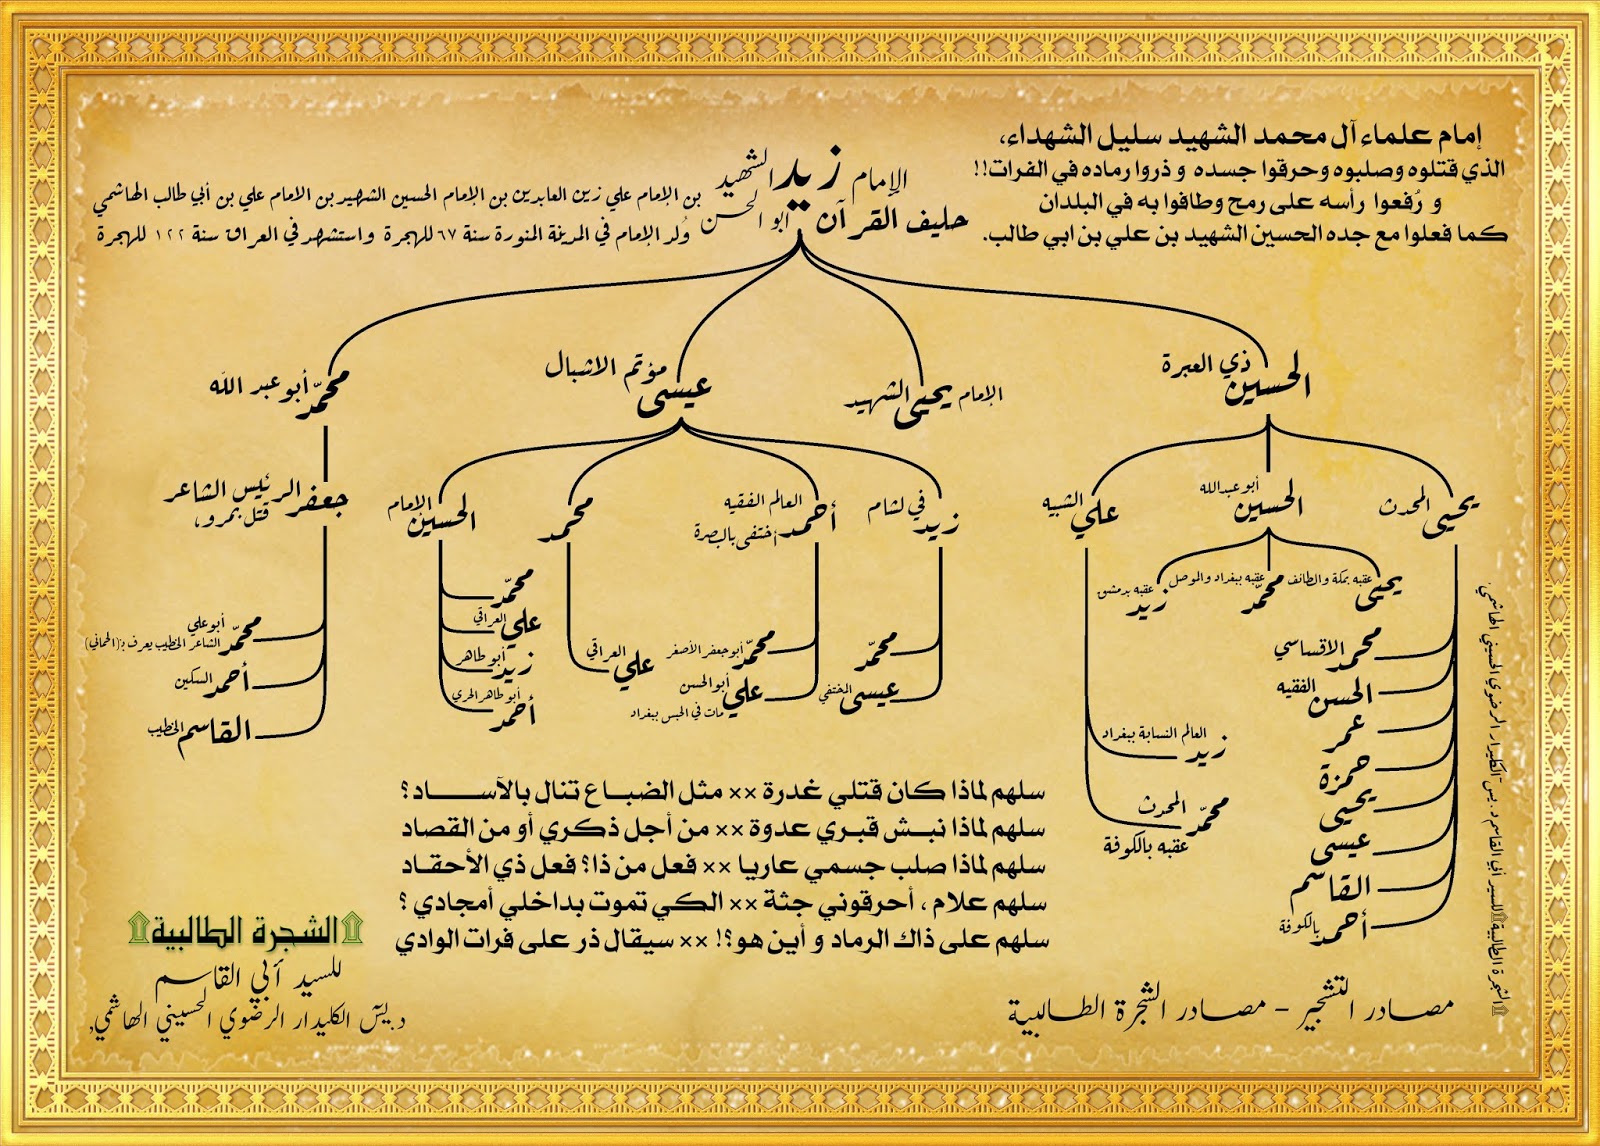 إمام علماء آل محمد الشهيد سليل الشهداء،
الذي قتلوه وصلبوه وحرقوا جسده وذروا رماده في الفرات!!
و رُفعوا رأسه على رمح وطافوا به في البلدان
كما فعلوا مع جده الحسين الشهيد بن علي بن ابي طالب.
الإمام زيد الشهيد
حليف القرآن ابو الحسن
بن الإمام علي زين العابدين بن الإمام الحسين الشهيد بن الامام علي بن أبي طالب الهاشمي
وُلد الإمام في المدينة المنورة سنة ٦٧ للهجرة واستشهد في العراق سنة ١٢٢ للهجرة
الحسين ذي العبرة
الإمام يحيى الشهيد
عيسى مؤتم الاشبال
محمّد أبو عبد الله
يحيى المحدث
الحسين أبو عبدالله
علي الشبيه
زيد في لشام
أحمد العالم الفقيه
أختفى بالبصرة
محمد
الحسين الإمام
جعفر الرئيس الشاعر
قتل بمرو،
يحيى عقبه بمكة والطائف
محمّد عقبه ببغداد والموصل
زيد عقبه بدمشق
محمد الاقساسي
الحسن الفقيه
عمر
حمزة
يحيى
عيسى
القاسم
أحمد بالكوفة
زيد العالم النسابة ببغداد
محمّد المحدث
عقبه بالكوفة
محمّد
عيسى المختفي
محمّد أبو جعفر الأصغر
علي أبو الحسن
مات في الحبس ببغداد
علي العراقي
محمّد
علي العراقي
زيد أبو طاهر
أحمد أبو طاهر الحري
محمّد أبو علي
الشاعر الخطيب يعرف بـ(الحماني)
أحمد السكين
القاسم الخطيب
سلهم لماذا كان قتلي غدرة ×× مثل الضباع تنال بالآساد؟
سلهم لماذا نبش قبري عدوة ×× من أجل ذكري أو من القصاد
سلهم لماذا صلب جسمي عاريا ×× فعل من ذا؟ فعل ذي الأحقاد
سلهم علام، أحرقوني جثة ×× الكي تموت بداخلي أمجادي؟
سلهم على ذاك الرماد و أين هو؟! ×× سيقال ذر على فرات الوادي
۩الشجرة الطالبية۩
للسيد أبي القاسم
د.يس الكليدار الرضوي الحسيني الهاشمي،
مصادر التشجير - مصادر الشجرة الطالبية
۩الشجرة الطالبية۩للسيد أبي القاسم د.يس الكليدار الرضوي الحسيني الهاشمي